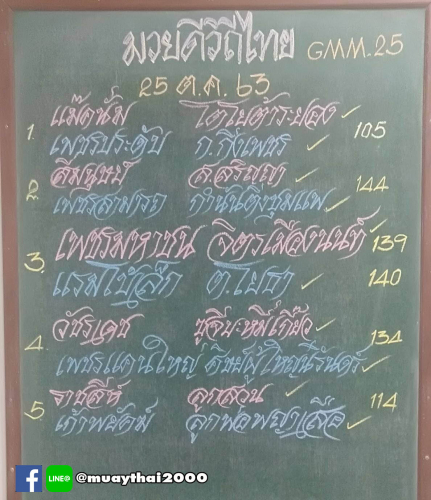 มวยดีวิถีไทย GMM-25
25 ต.ค. 63
1. แม็ดนั่ม โตโยต้าระยอง 105
เพชรประดับ ก.กิ่งเพชร
2. ส.สริญญา 144
เพชรสามารถ กำนันติ่งชุมแพ
3. เพชรมหาชน จิตรเมืองนนท์ 139
แรมโบ้เล็ก ต.โยธา 140
4. วัชรเดช ซูตีบะหมี่เกี๊ยว 134
เพชรแดนใหญ่
5. ราชสีห์ ลูกสวน 114
เก้าพยัคฆ์
f LINE@ @muaythai2000